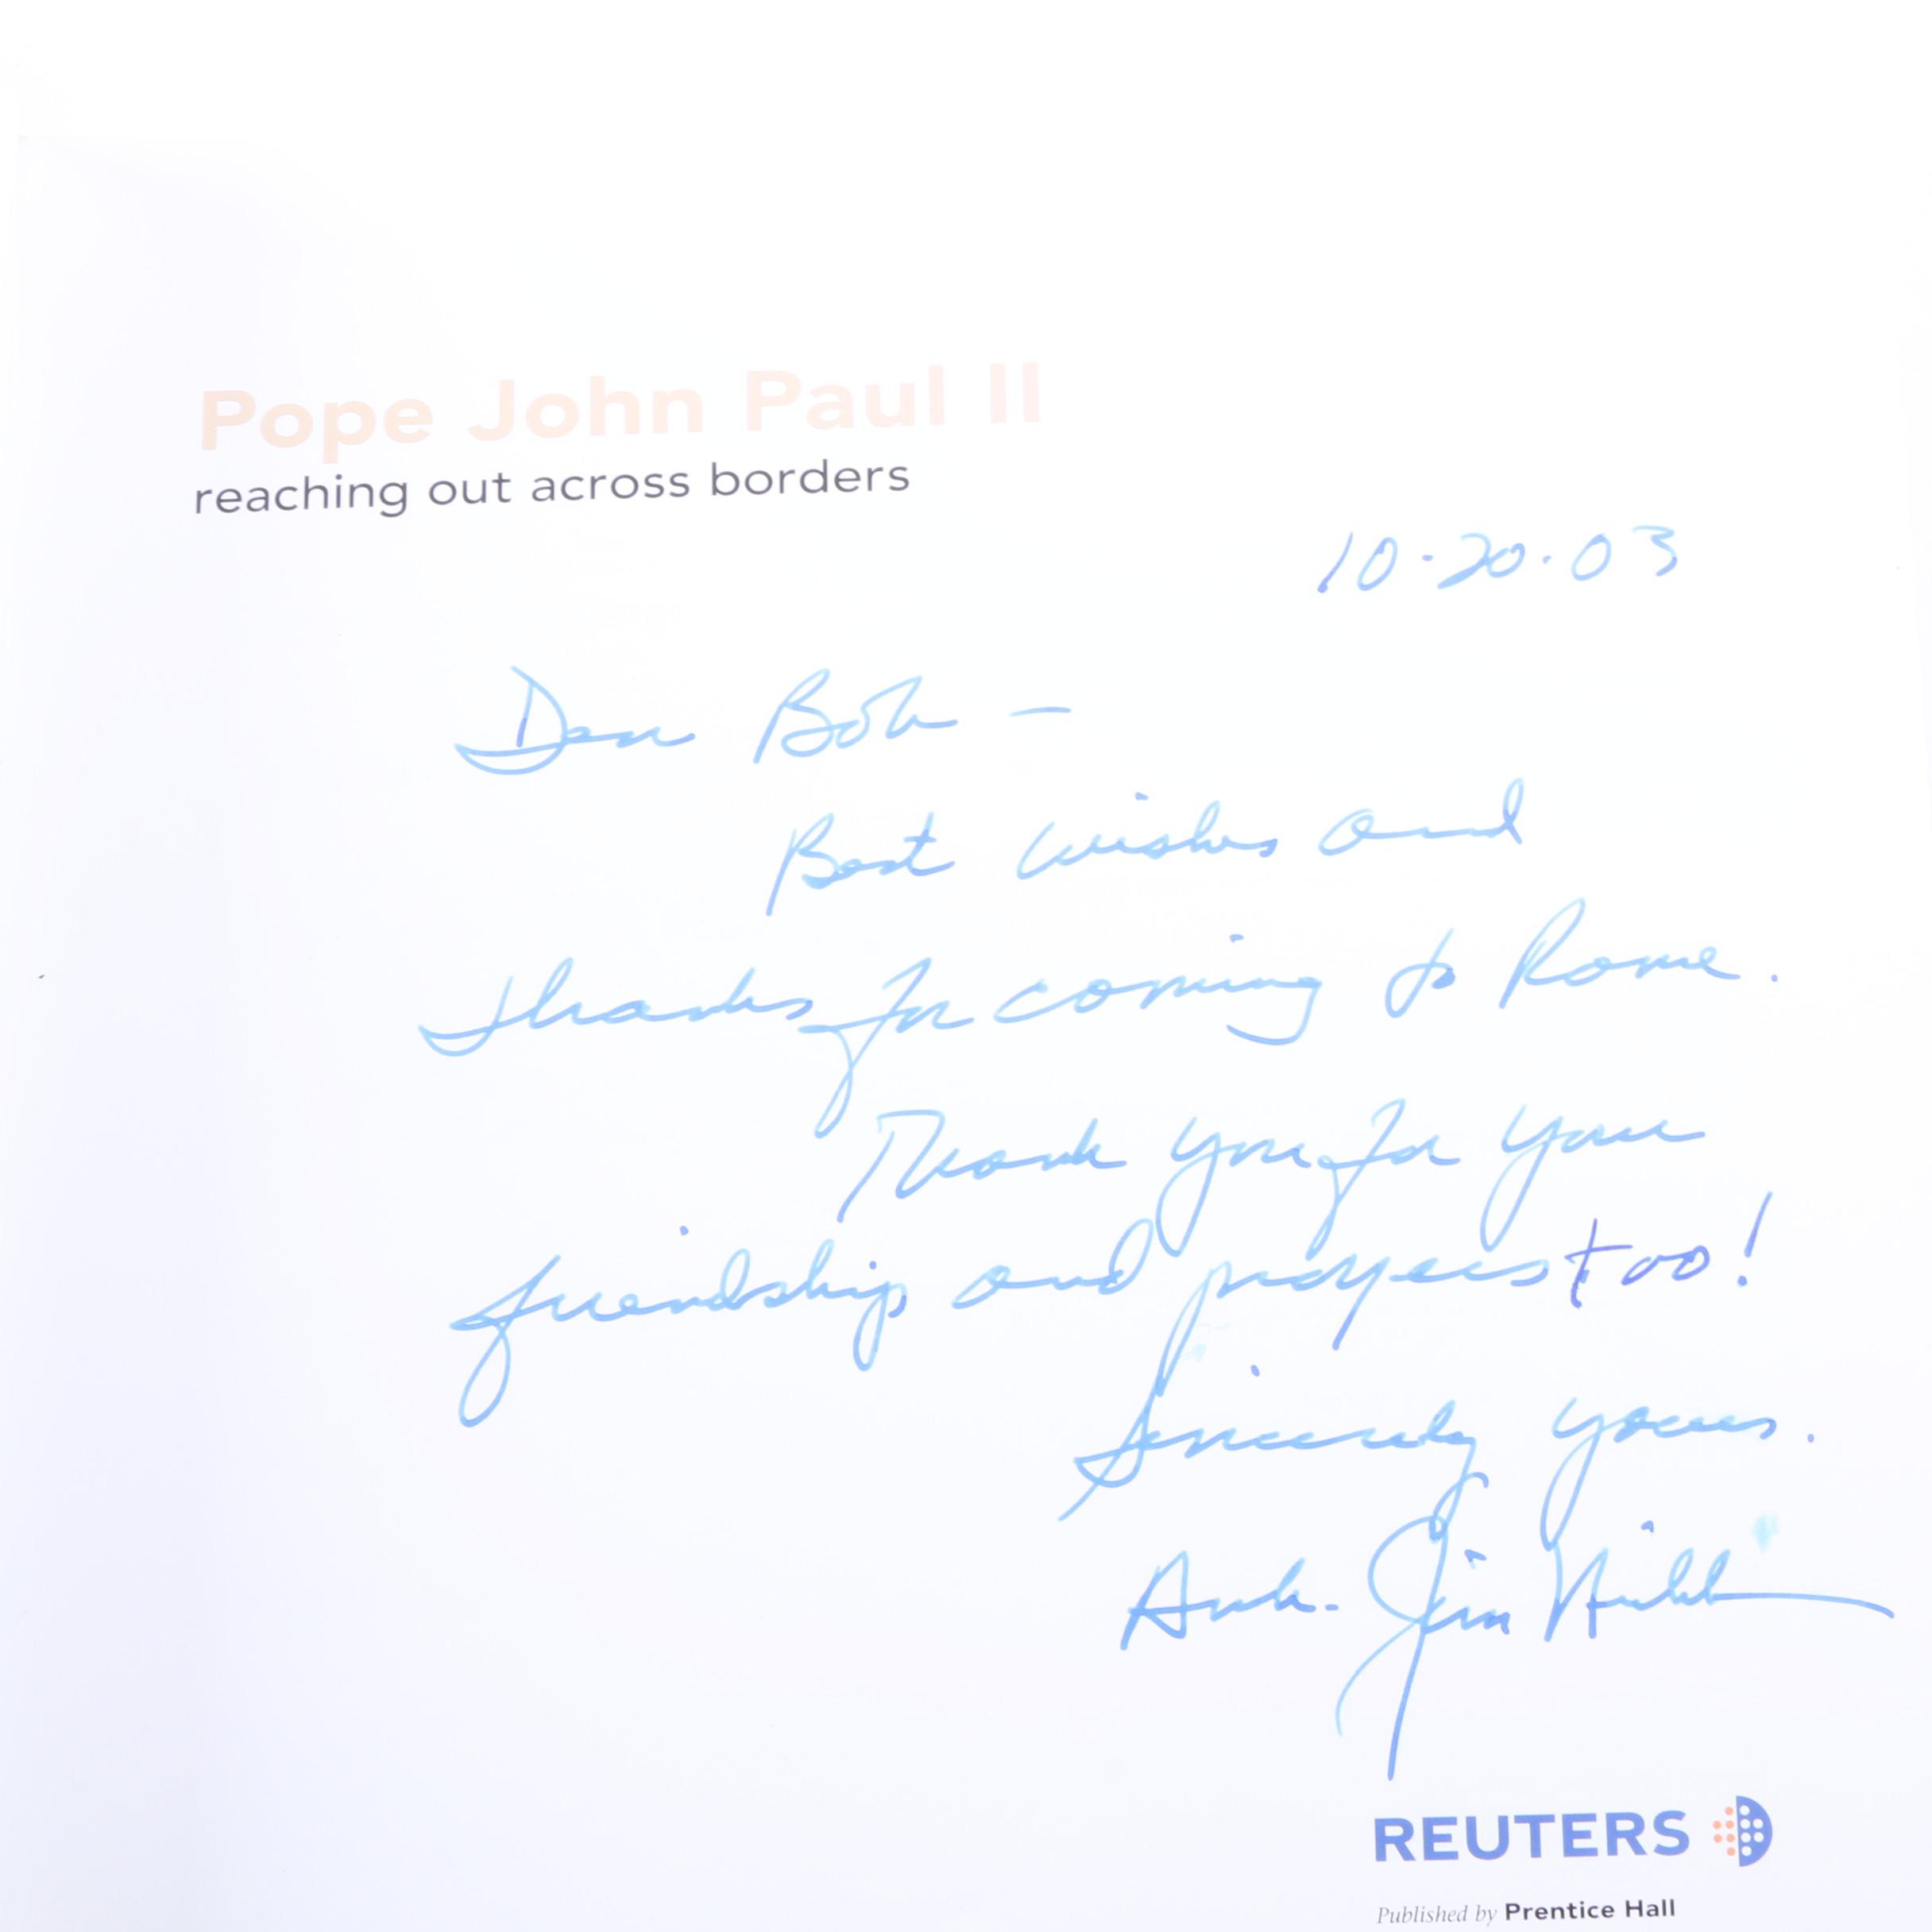 Pope John Paul II
reaching out across borders
10·20·03
Dear Bob —
Best wishes and
thanks for coming to Rome.
Thank you for your
friendship and prayers too!
Sincerely yours.
Amb. Jim
REUTERS
Published by Prentice Hall